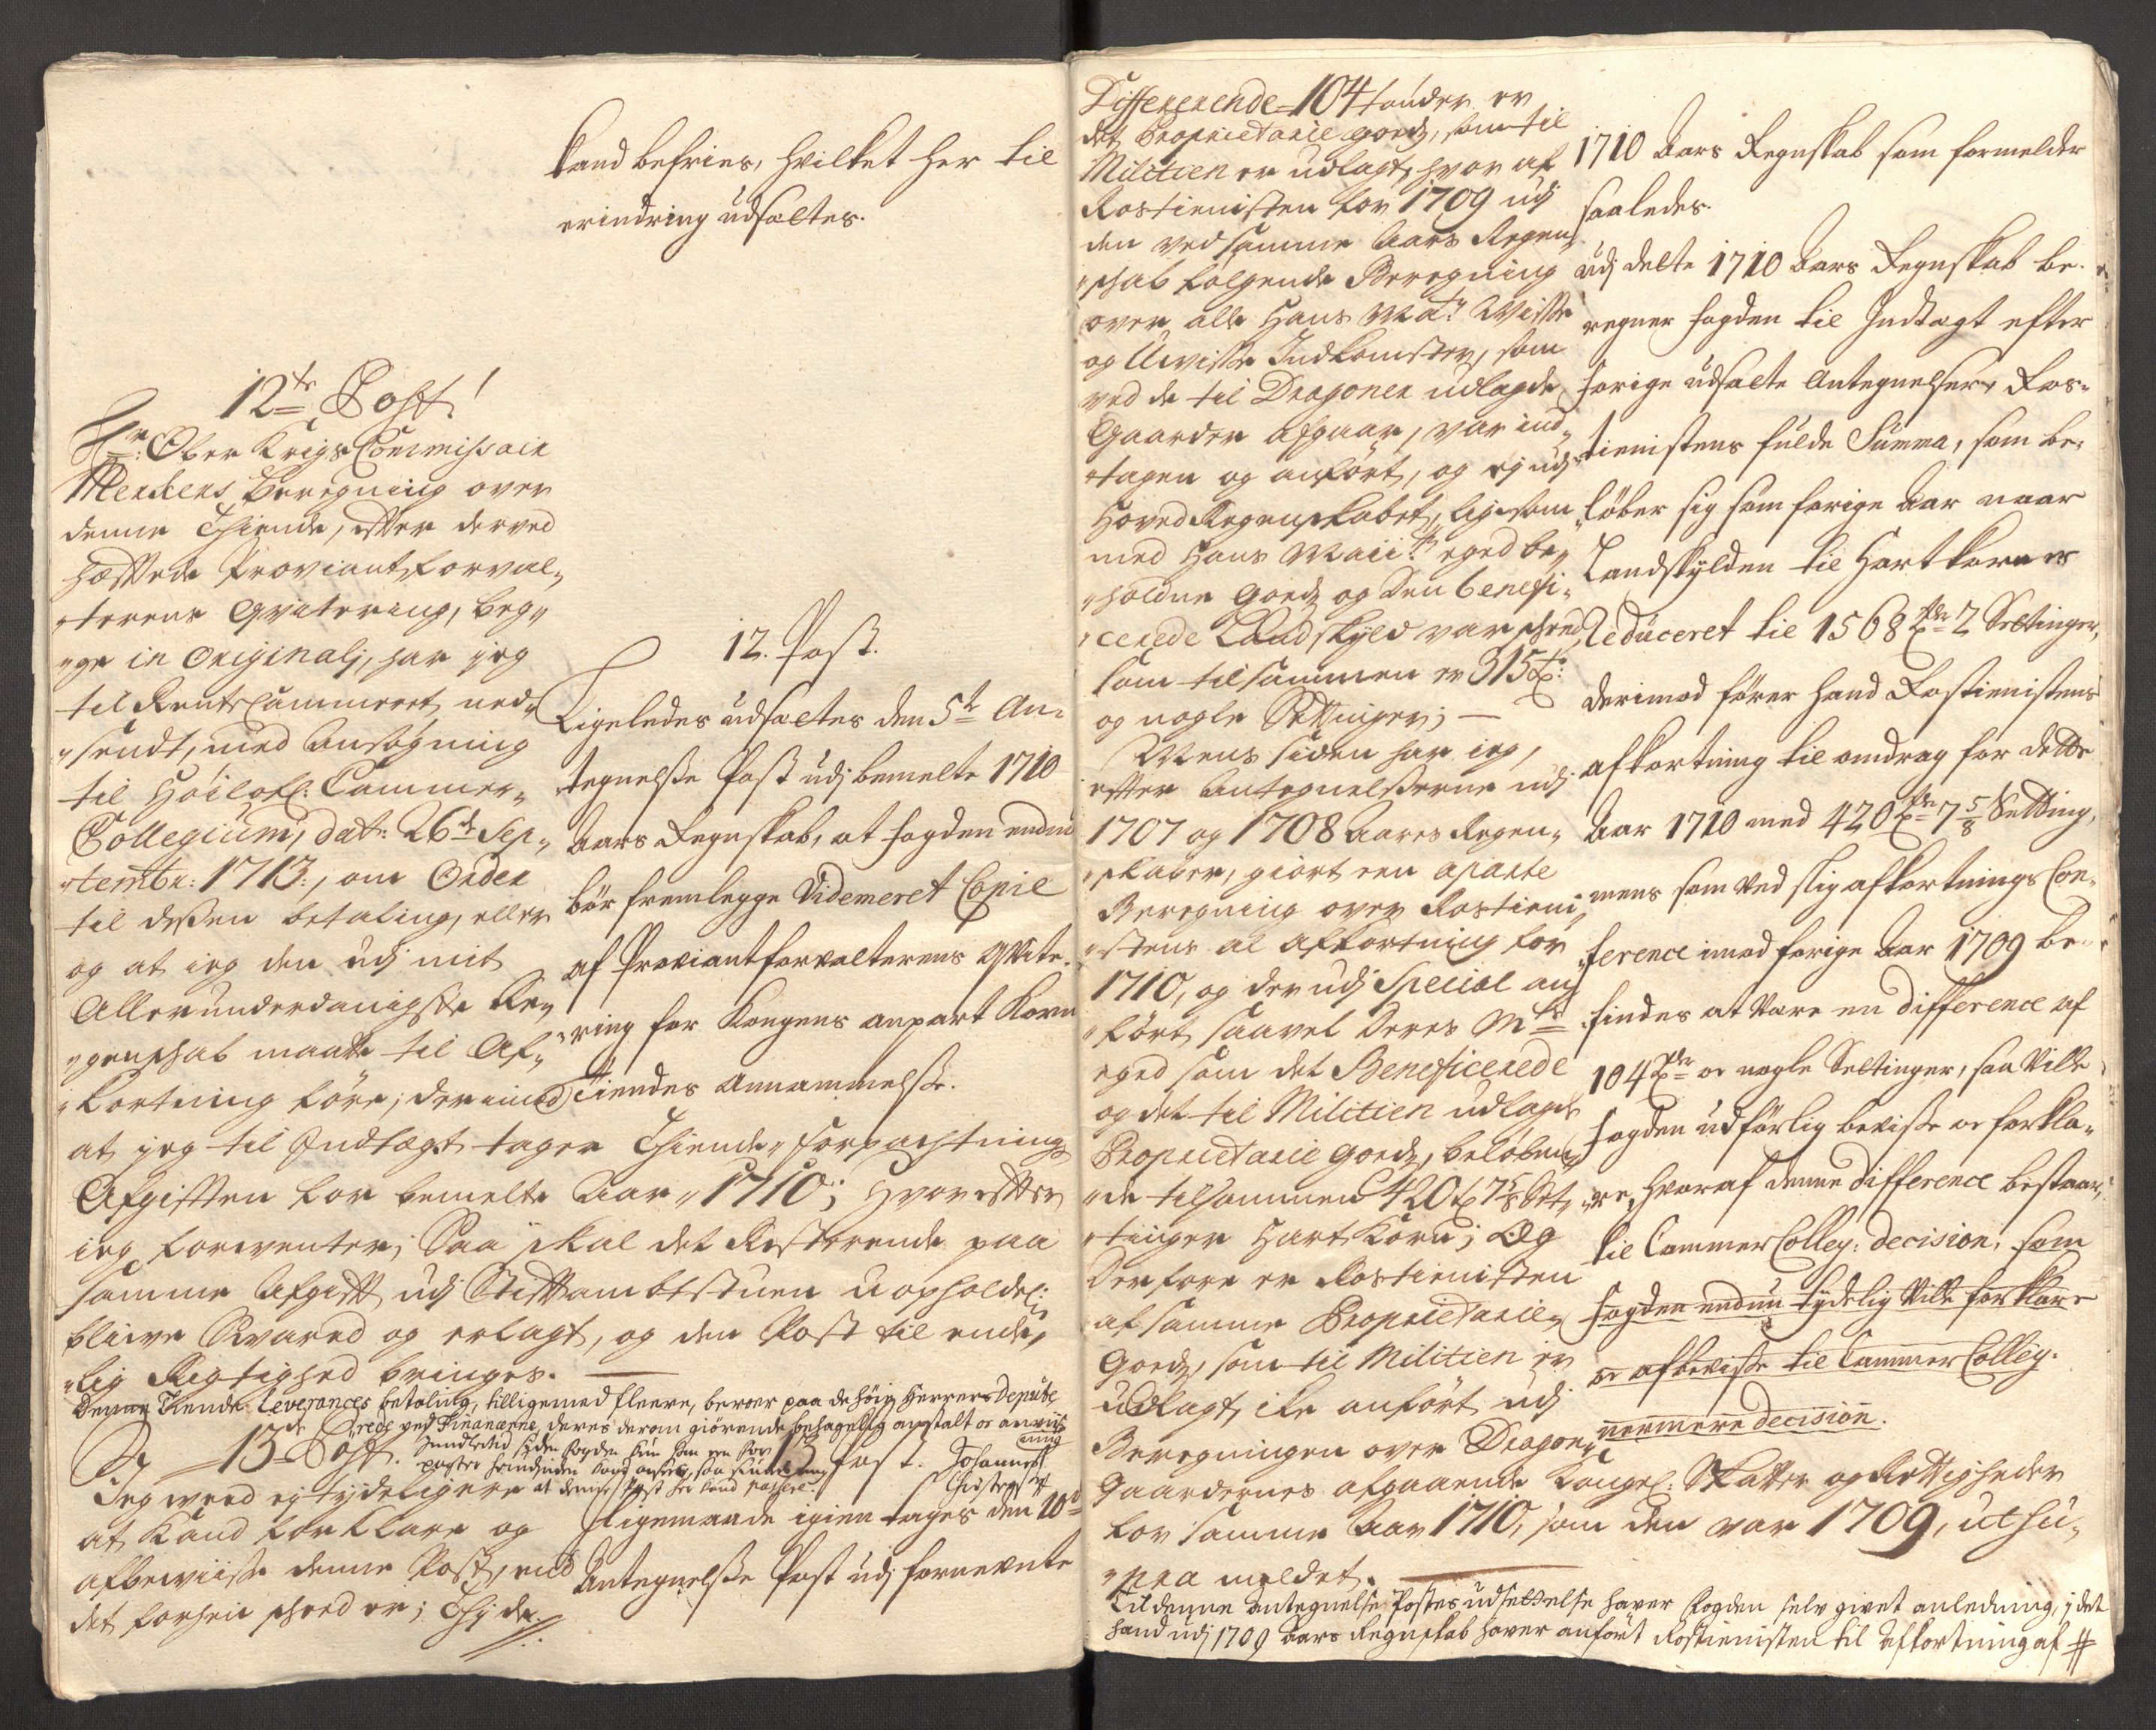 kand befries, hvilket her til
erindring udsættes.
12te Post!
Hr: Ober Krigs Commissair
Menkens Beregning over
denne Thiende, efter derved
hæftede Proviantforval„
„terens Qvitering, beg„
„ge in Originali, har jeg
til RenteCammeret ned„
„sendt, med Ansøgning
til Høilofl: Cammer„
Collegium, dat: 26de Sep„
„tembr: 1713, om Order
til dessen betaling, eller
og at jeg den udj mit
Allerunderdanigste Re„
„genskab maatte til Af„
„kortning føre; derimod
at jeg til Indtægt tager Thiende„forpachtnings
Afgiften for bemelte Aar 1710; Hvorefter
jeg forventer, Saa skal det Resterende paa
samme Afgift udj Stiftambtstuen uopholdel:
blive Svared og erlagt, og den Post til ende„
„lig Rigtighed bringes.
Denne Tiende Leverances betaling, tilligemed fleere, beroer paa de høie Herrers Depute
rede ved Financerne, deres derom giørende behagelig anstalt og anviis
ning
13de Post.
Jeg weed ej tydeligere
at kand forklare og
afbeviisse denne Post, end
det forhen skeed er; Thj de
12. Post.
Ligeledes udsættes den 5te An„
tegnelsse Post udj bemelte 1710
Aars Regnskab, at fogden endnu
bør fremlegge Videmeret Copie
af Proviantforvalterens Qvite„
„ring for Kongens anpart Korn
Tiendes Annammelsse.
13 Post.
Johannes
Christensen
Ligemaade igien tages den 10de
Antegnelsse Post udj fornevnte
Differerende 104 tønder er
det Proprietarie Goeds, som til
Militien er udlagt, hvor af
Rostienisten for 1709 udj
den ved samme Aars Regen„
„skab følgende Beregning
over alle Hans Mats: Wisse
og Uvisse Indkomster, som
ved de til Dragoner udlagde
Gaarder afgaar, var ind„
„tagen og anført, og ej udj
HovedRegenskabet, ligesom
med Hans Maiits: eged be„
„holdne Goeds og den benefi„
„cerede Landskyld var skeed,
som tilsammen er 315 t:
og nogle Settinger; —
Mens siden har jeg,
efter Antegnelsserne udj
1707 og 1708 Aars Regen„
„skaber, giort een aparte
Beregning over Rostieni„
„stens al afkortning for
1710, og der udj Special an„
„ført, saavel Deres Mts
eged som det Beneficerede
og det til Militien udlagte
Proprietarie Goeds, beløben„
„de tilsammen 420 t 7 5/8 Set„
„tinger Hart Korn; Og
derfore er Rostienisten
af samme Proprietarie„
Goeds, som til Militien er
udlagt, ike anført udj
Beregningen over Dragon„
Gaardernes afgaaende Kongel: Skatter og Rettigheder
for samme Aar 1710, som den var 1709, ut su„
„pra meldet.
Til denne antegnelse Postes udsettelse haver fogden selv givet anledning, i det
hand udj 1709 Aars Regnskab haver anført Rostienisten til Afkortning af #
1710 Aars Regnskab som formelder
saaledes.
udj dette 1710 Aars Regnskab be„
regner fogden til Indtægt efter
forige udsatte Antegnelser, Ros„
tienistens fulde Summa, som be„
løber sig som forige Aar naar
Landskylden til Hartkorn er
Reduceret til 1568 tdr 2 Settinger,
derimod fører hand Rostienistens
afkortning til omdrag for dette
Aar 1710 med 420 tdr 7 5/8 Setting,
mens som ved slig afkortnings Con„
ference imod forige Aar 1709 be„
findes at være en difference af
104 tdr og nogle Settinger, saa vilde
fogden udførlig bevisse og forkla„
re, hvoraf denne difference bestaar,
til Cammer Colleg: decision, som
fogden endnu tydelig vilde forklare
og afbevisse til Cammer Colleg.
nermere decision.